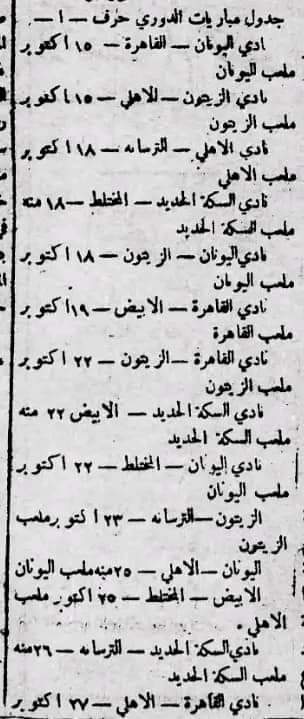 جدول مباريات الدوري حرف — ا —
نادي اليونان — القاهرة — ١٥ اكتوبر
ملعب اليونان
نادي الزيتون — للاهلي — ١٥ اكتوبر
ملعب الزيتون
نادي الاهلي — للترسانه — ١٨ اكتوبر
ملعب الاهلي
نادي السكة الحديد — المختلط — ١٨ منه
ملعب السكة الحديد
نادي اليونان — الزيتون — ١٨ اكتوبر
ملعب اليونان
نادي القاهرة — الابيض — ١٩ اكتوبر
ملعب القاهرة
نادي القاهرة — الزيتون — ٢٢ اكتوبر
ملعب الزيتون
نادي السكة الحديد — الابيض ٢٢ منه
ملعب السكة الحديد
نادي اليونان — المختلط — ٢٢ اكتوبر
ملعب اليونان
الزيتون — للترسانه — ٢٣ اكتوبر ملعب
الزيتون
اليونان — الاهلي — ٢٥ منه ملعب اليونان
الابيض — المختلط — ٢٥ اكتوبر ملعب
الاهلي .
نادي السكة الحديد — للترسانه — ٢٦ منه
ملعب السكة الحديد
نادي القاهرة — الاهلي — ٢٧ اكتوبر